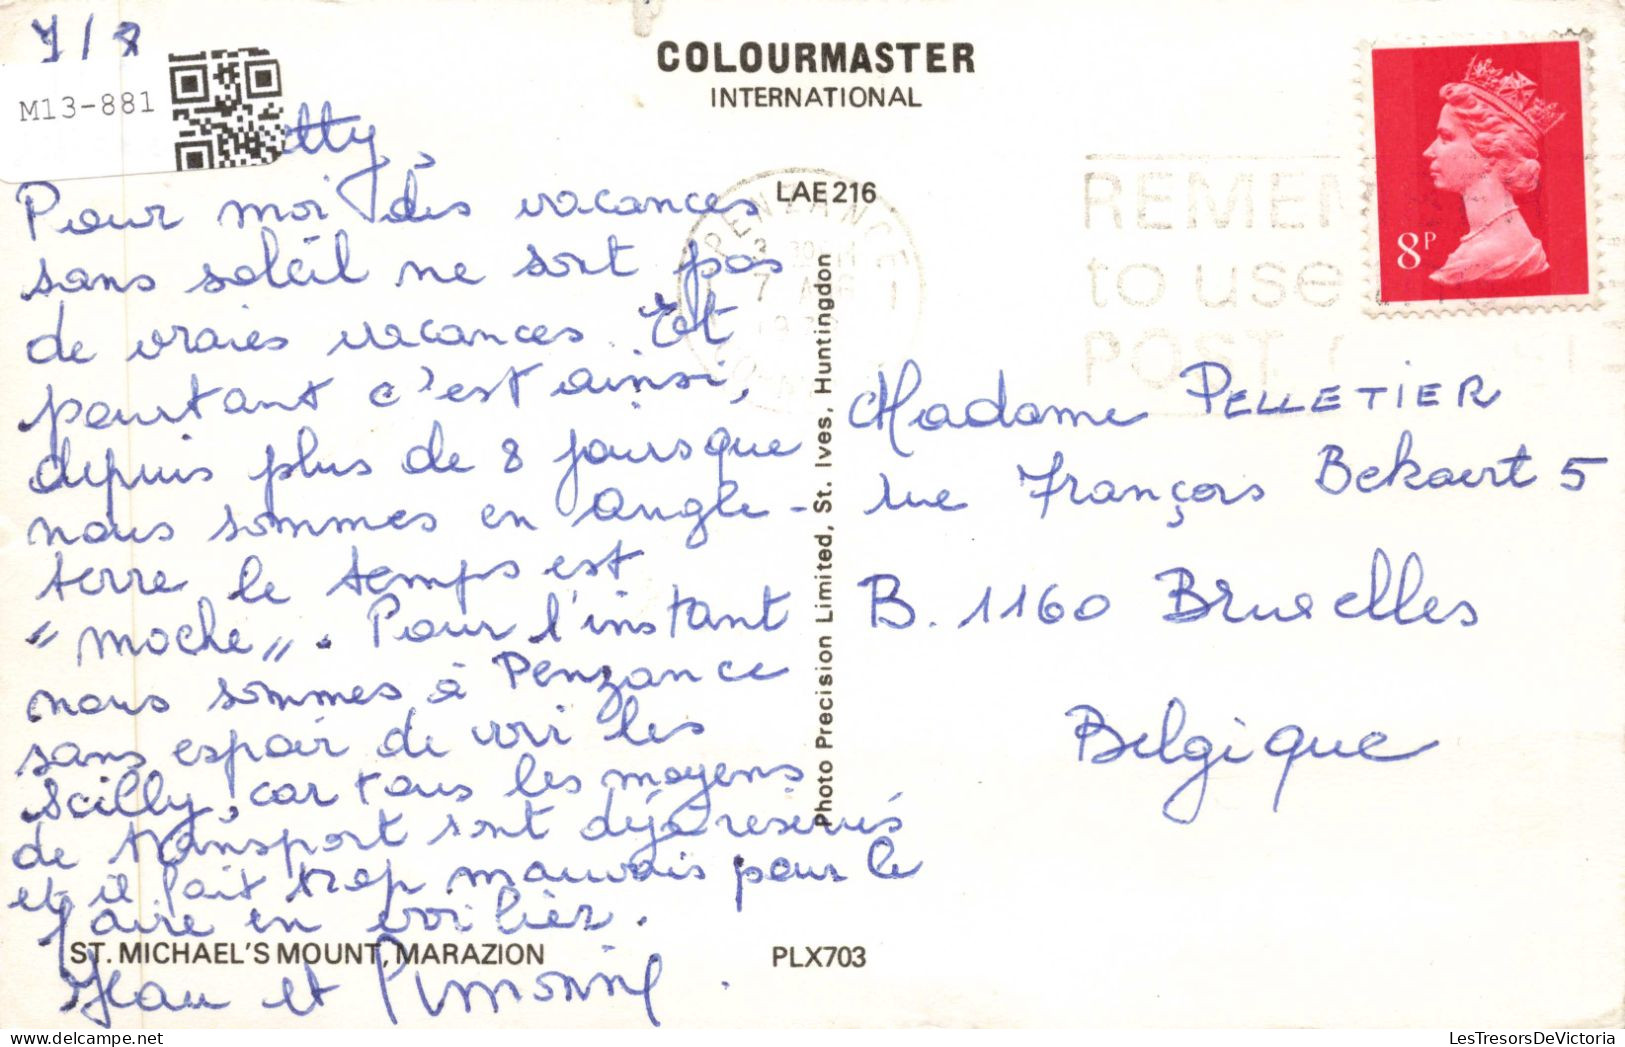 7/8
M13-881
COLOURMASTER
INTERNATIONAL
LAE 216
Pour moi des vacances
sans soleil ne sont pas
de vraies vacances. Et
pourtant c'est ainsi,
depuis plus de 8 jours que
nous sommes en Angle-
terre le temps est
"moche". Pour l'instant
nous sommes à Penzance
sans espoir de voir les
Scilly, car tous les moyens
de transport sont déjà réservés
et il fait trop mauvais pour le
faire en voilier.
Jean et
ST. MICHAEL'S MOUNT, MARAZION
PLX703
Photo Precision Limited, St. Ives, Huntingdon
PENZANCE
7
REMEM
to use
POST
8P
Madame PELLETIER
rue François Bekaert 5
B. 1160 Bruxelles
Belgique
LesTresorsDeVictoria